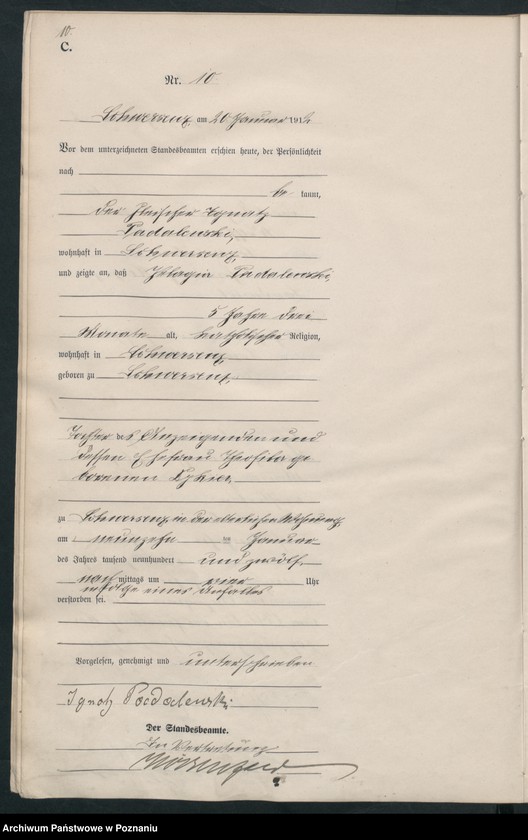 10.
C.
Nr. 10.
Schwersenz, am 20 Januar 1912
Vor dem unterzeichneten Standesbeamten erschien heute, der Persönlichkeit
nach
be kannt,
der Fleischer Ignatz
Padalewski,
wohnhaft in Schwersenz,
und zeigte an, daß Pelagia Padalewski,
5 Jahre drei
Monate alt, katholischer Religion,
wohnhaft in Schwersenz
geboren zu Schwersenz,
Tochter des Anzeigenden und
dessen Ehefrau Theophila ge
borenen
zu Schwersenz in der elterlichen Wohnung,
am neunzehn ten Januar
des Jahres tausend neunhundert und zwölf,
nach mittags um vier Uhr
infolge eines Unfalles
verstorben sei.
Vorgelesen, genehmigt und unterschrieben
Ignatz Padalewski
Der Standesbeamte.
In Vertretung
Archiwum Państwowe w Poznaniu